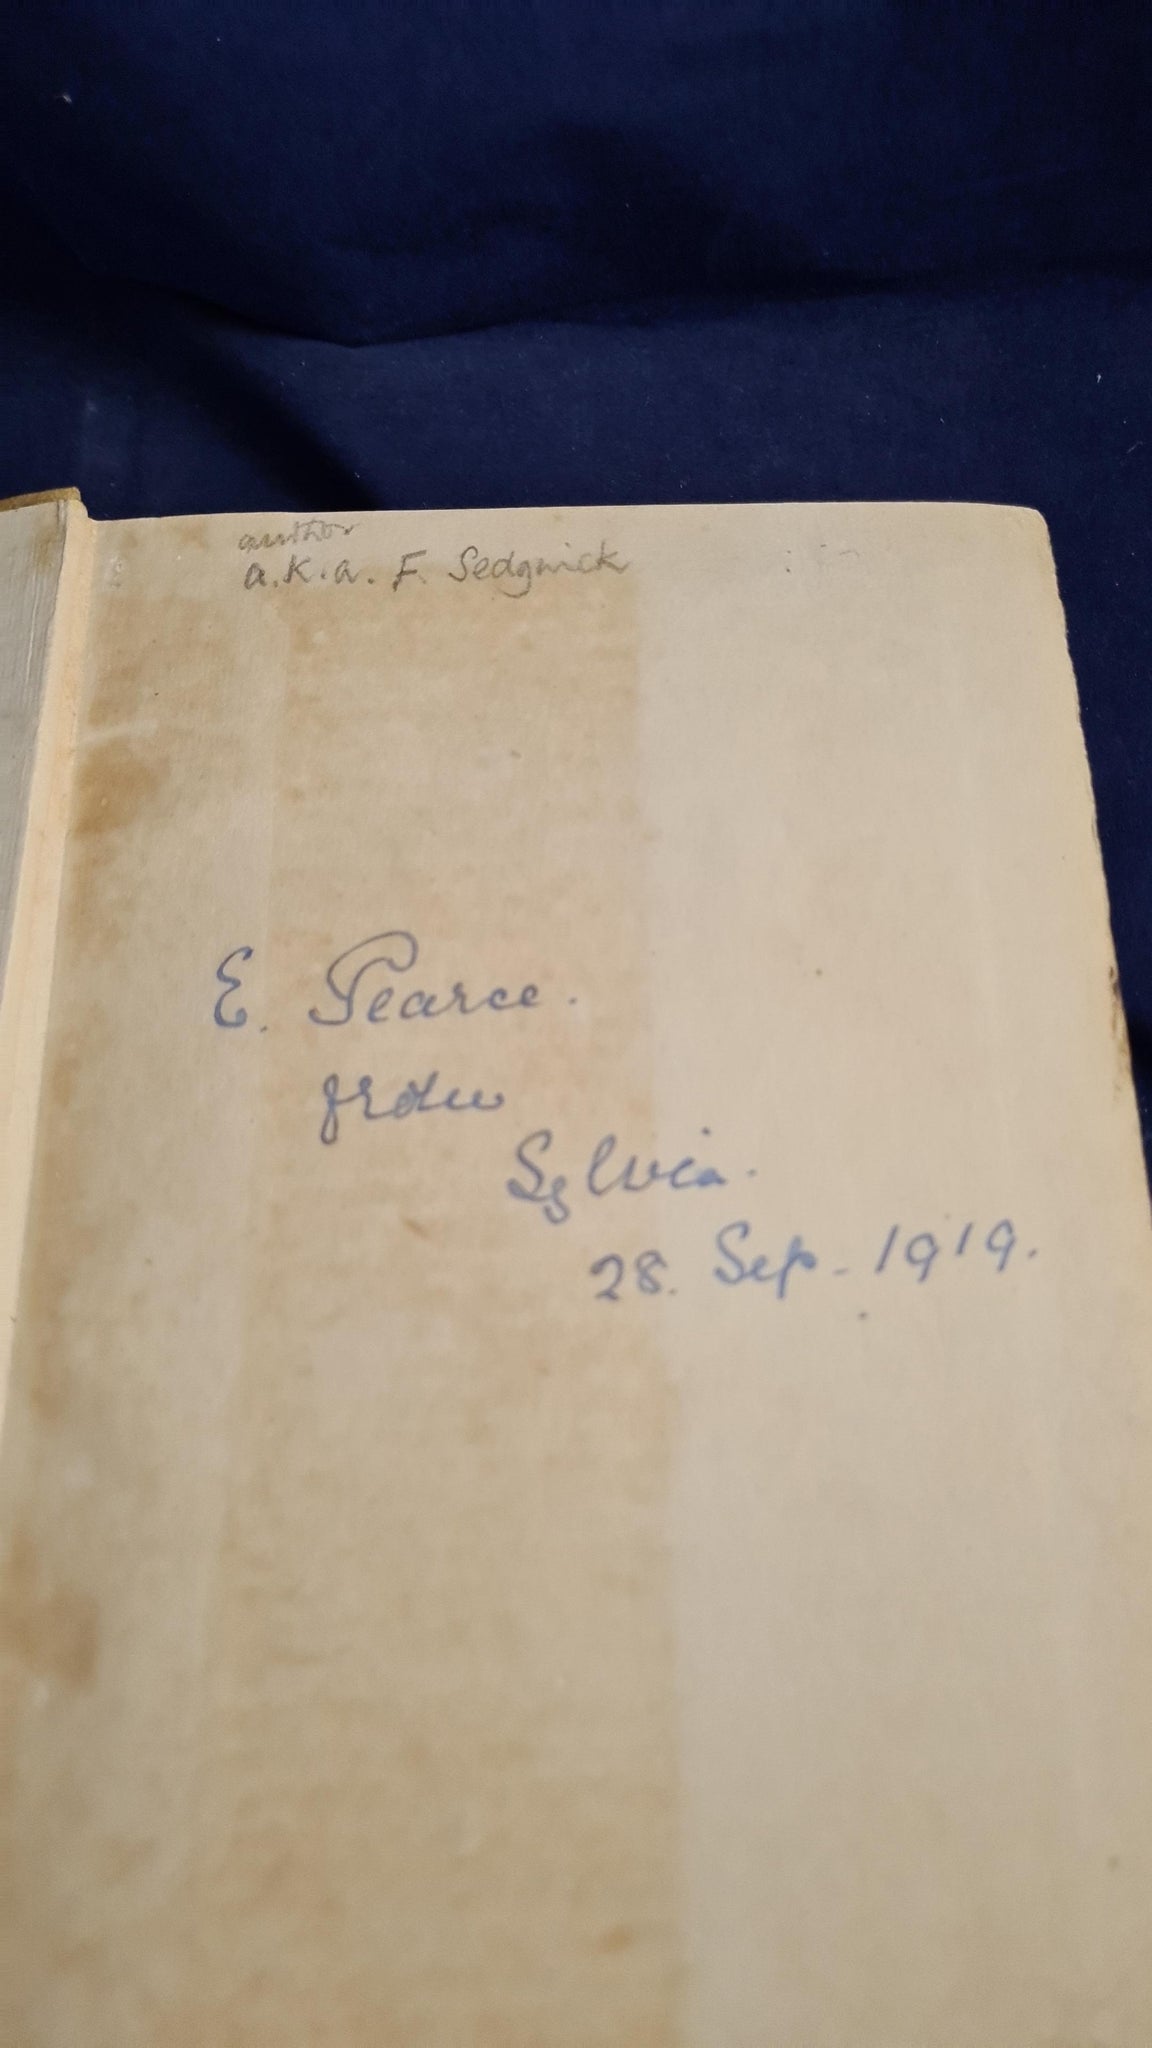 author
a.k.a. F. Sedgwick
E. Pearce.
from
Sylvia.
28. Sep. 1919.